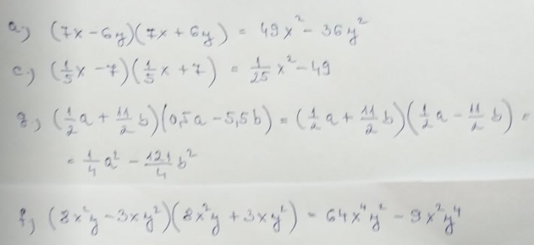 a,) (7x - 6y)(7x + 6y) = 49x² - 36y²
c,) (1/5 x - 7)(1/5 x + 7) = 1/25 x² - 49
g,) (1/2 a + 11/2 b)(0,5a - 5,5b) = (1/2 a + 11/2 b)(1/2 a - 11/2 b) =
= 1/4 a² - 121/4 b²
f,) (8x²y - 3xy²)(8x²y + 3xy²) = 64x⁴y² - 9x²y⁴